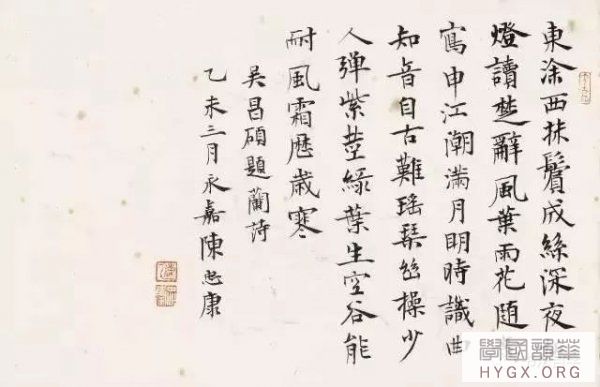 東涂西抹鬢成絲深夜
燈讀楚辭風葉雨花隨
寫申江潮滿月明時識曲
知音自古難瑤琴幽操少
人弹紫莖綠葉生空谷能
耐風霜歷歲寒
吳昌碩題蘭詩
乙未三月永嘉陳忠康
學國韻華
HYGX.ORG